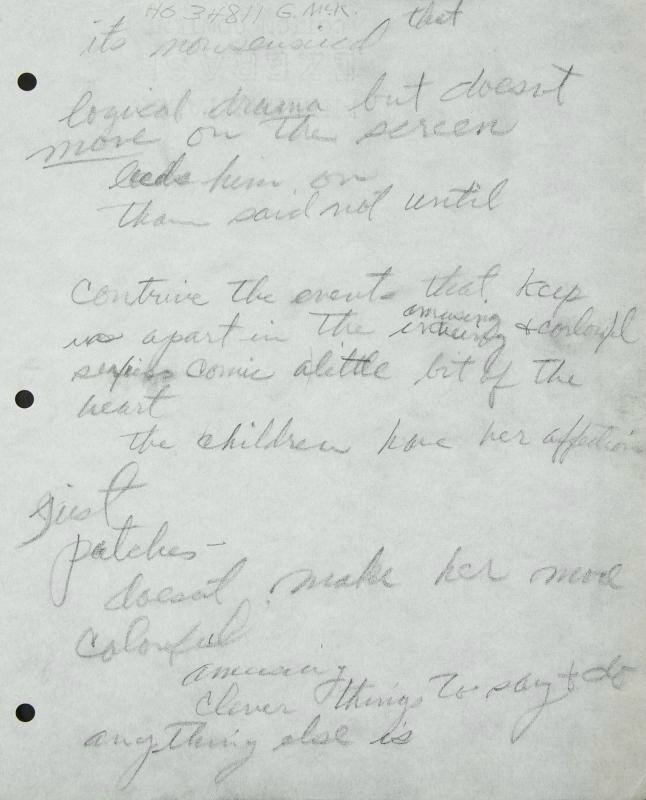 HO 34811 G. McK.
its nonsensical that
logical drama but doesnt
move on the screen
leads him on
than said not until
Contrive the events that keep
us apart in the
amusing
& colorful
comic a little bit of the
heart
the children have her affection
just
patches -
doesnt make her more
Colorful
amusing
clever things to say & do
anything else is